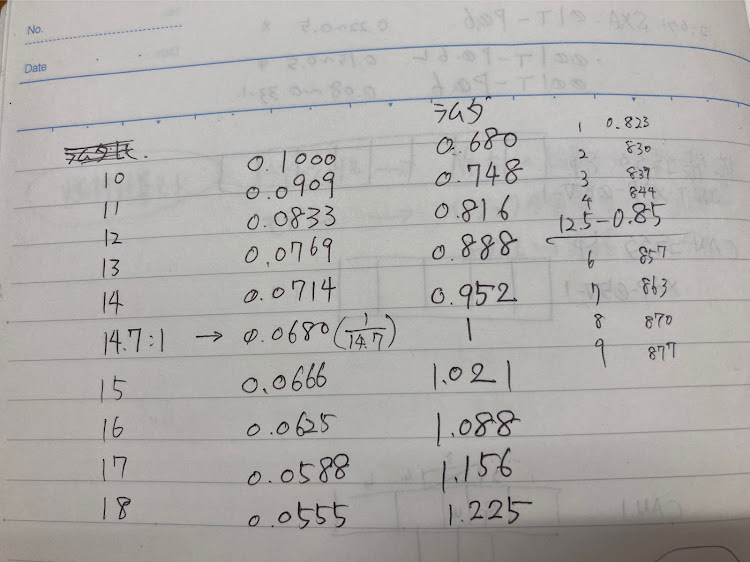 No.
Date
ラムダ
10 0.1000 0.680
11 0.0909 0.748
12 0.0833 0.816
13 0.0769 0.888
14 0.0714 0.952
14.7:1 → 0.0680 (1/14.7) 1
15 0.0666 1.021
16 0.0625 1.088
17 0.0588 1.156
18 0.0555 1.225
1 0.823
2 830
3 837
4 844
12.5-0.85
6 857
7 863
8 870
9 877